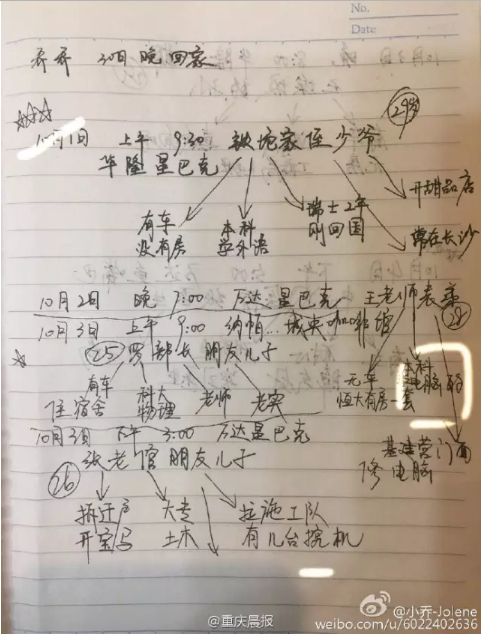 No.
Date
乔乔 30日晚回家
10月1日 上午 9:30 铁坨家侄少爷 29岁
华隆星巴克
开甜品店
有车
没有房
本科
学外语
瑞士2年
刚回国
常在长沙
10月2日 晚 7:00 万达星巴克 王老师表弟 28
10月3日 上午 9:00 纳帕... 咖啡馆
25 罗部长朋友儿子
有车
住宿舍
科大
物理
老师
老实
无车
恒大有房一套
本科
基建营门面
修电脑
10月3日 下午 3:00 万达星巴克
张老倌朋友儿子
26
拆迁户
开宝马
大专
土木
拉施工队
有几台挖机
@重庆晨报
@小乔-Jolene
weibo.com/u/6022402636